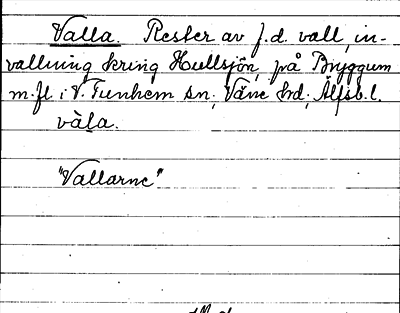 Valla. Rester av f.d. vall, in-
vallning kring Hullsjön, på Bryggum
m.fl. i V. Tunhem sn, Väne hrd, Älfsb. l.
vàla.
"Vallarne"